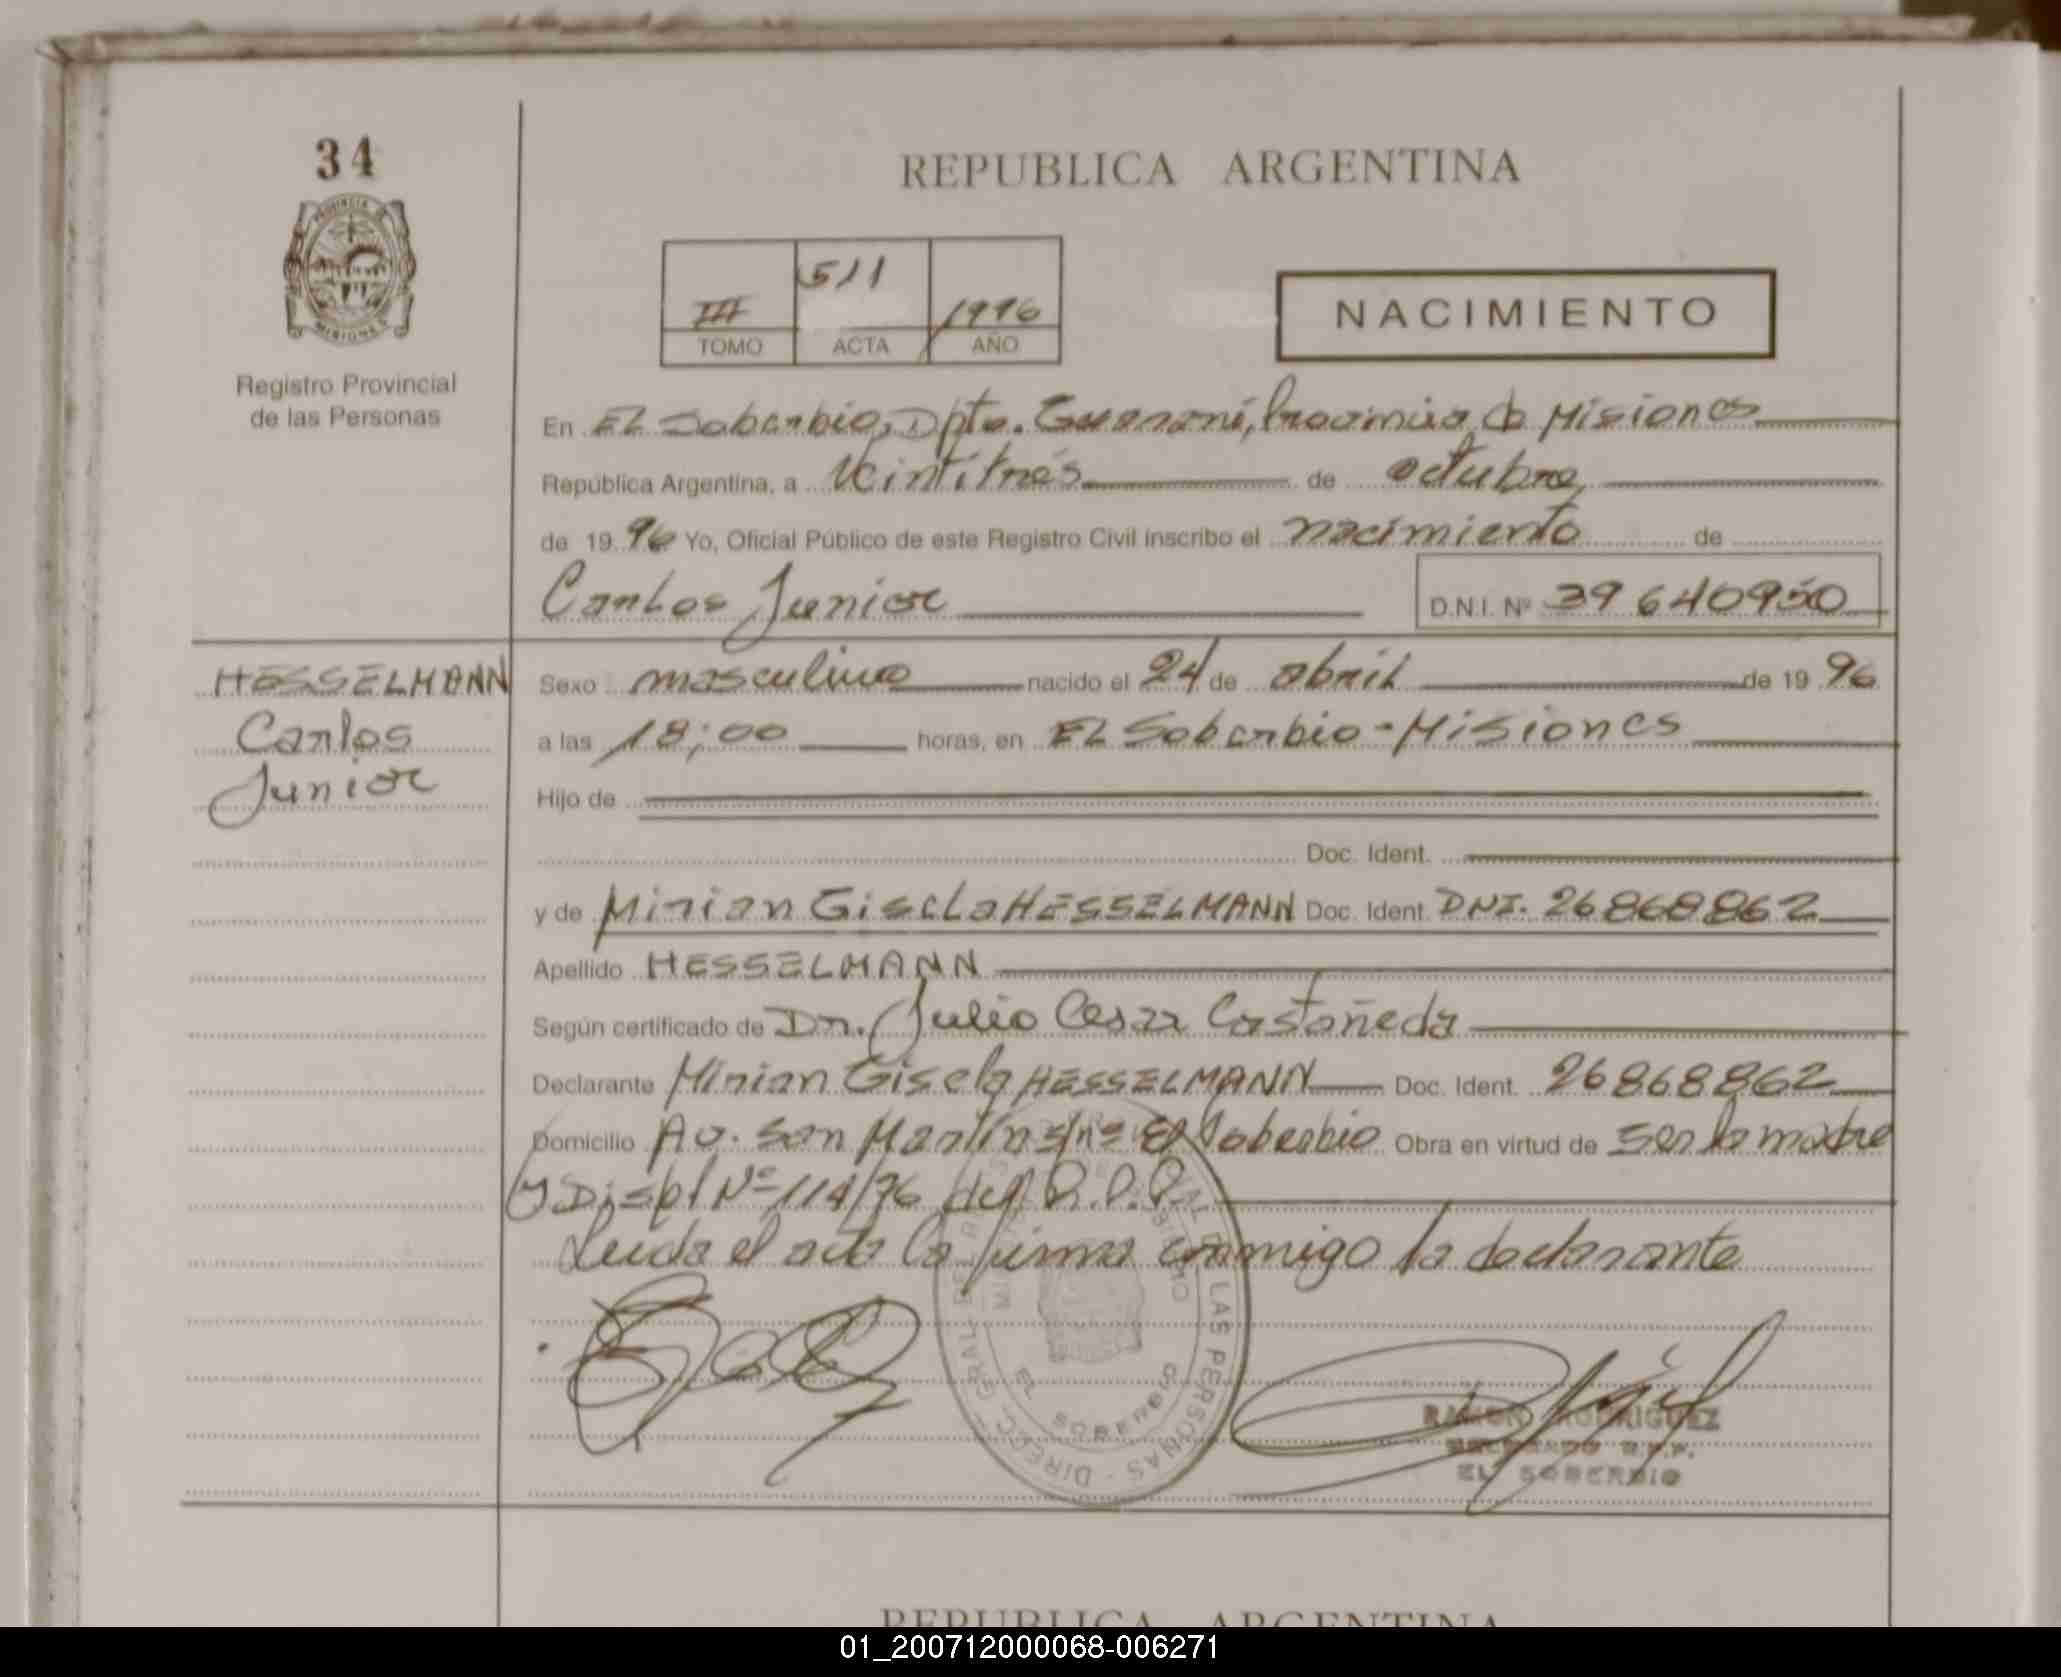 34
PROVINCIA DE
MISIONES
Registro Provincial
de las Personas
REPUBLICA ARGENTINA
III 511 1996
TOMO ACTA AÑO
NACIMIENTO
En EL Soberbio, Dpto. Guaraní, Provincia de Misiones
República Argentina, a Veintitrés de octubre
de 19 96 Yo, Oficial Público de este Registro Civil inscribo el nacimiento de
Carlos Junior
D.N.I. Nº 39640950
HESSELMANN
Carlos
Junior
Sexo masculino nacido el 24 de abril de 19 96
a las 18:00 horas, en EL Soberbio - Misiones
Hijo de
Doc. Ident.
y de Mirian Gisela HESSELMANN Doc. Ident. DNI. 26868862
Apellido HESSELMANN
Según certificado de Dr. Julio Cesar Castañeda
Declarante Mirian Gisela HESSELMANN Doc. Ident. 26868862
Domicilio Av. San Martín s/nº El Soberbio Obra en virtud de ser la madre
y Disp. Nº 114/96 del R.P.P.
Leida el acta la firma conmigo la declarante
DIREC. GRAL. DEL LAS PERSONAS
EL SOBERBIO
RAMON RODRIGUEZ
DELEGADO R.P.P.
EL SOBERBIO
REPUBLICA ARGENTINA
01_200712000068-006271